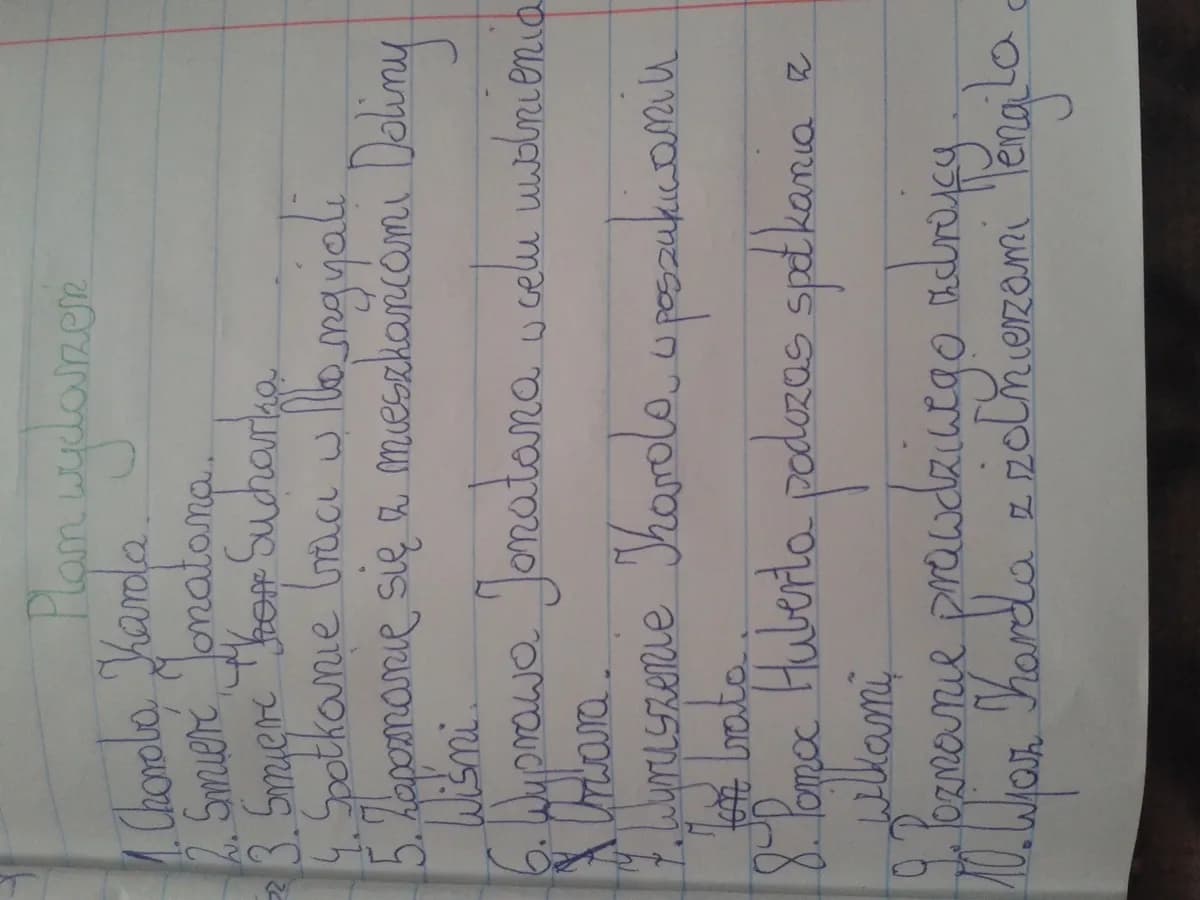 Plan wydarzeń
1. Choroba Karola.
2. Śmierć Jonatana.
3. Śmierć Sucharka.
4. Spotkanie braci w Nangijali
5. Zapoznanie się z mieszkańcami Doliny
Wiśni.
6. Wyprawa Jonatana w celu uwolnienia
Orwara.
7. Wyruszenie Karola w poszukiwaniu
brata.
8. Pomoc Huberta podczas spotkania z
wilkami.
9. Poznanie prawdziwego zdrajcy.
10. Wjazd Karola z żołnierzami Tengila